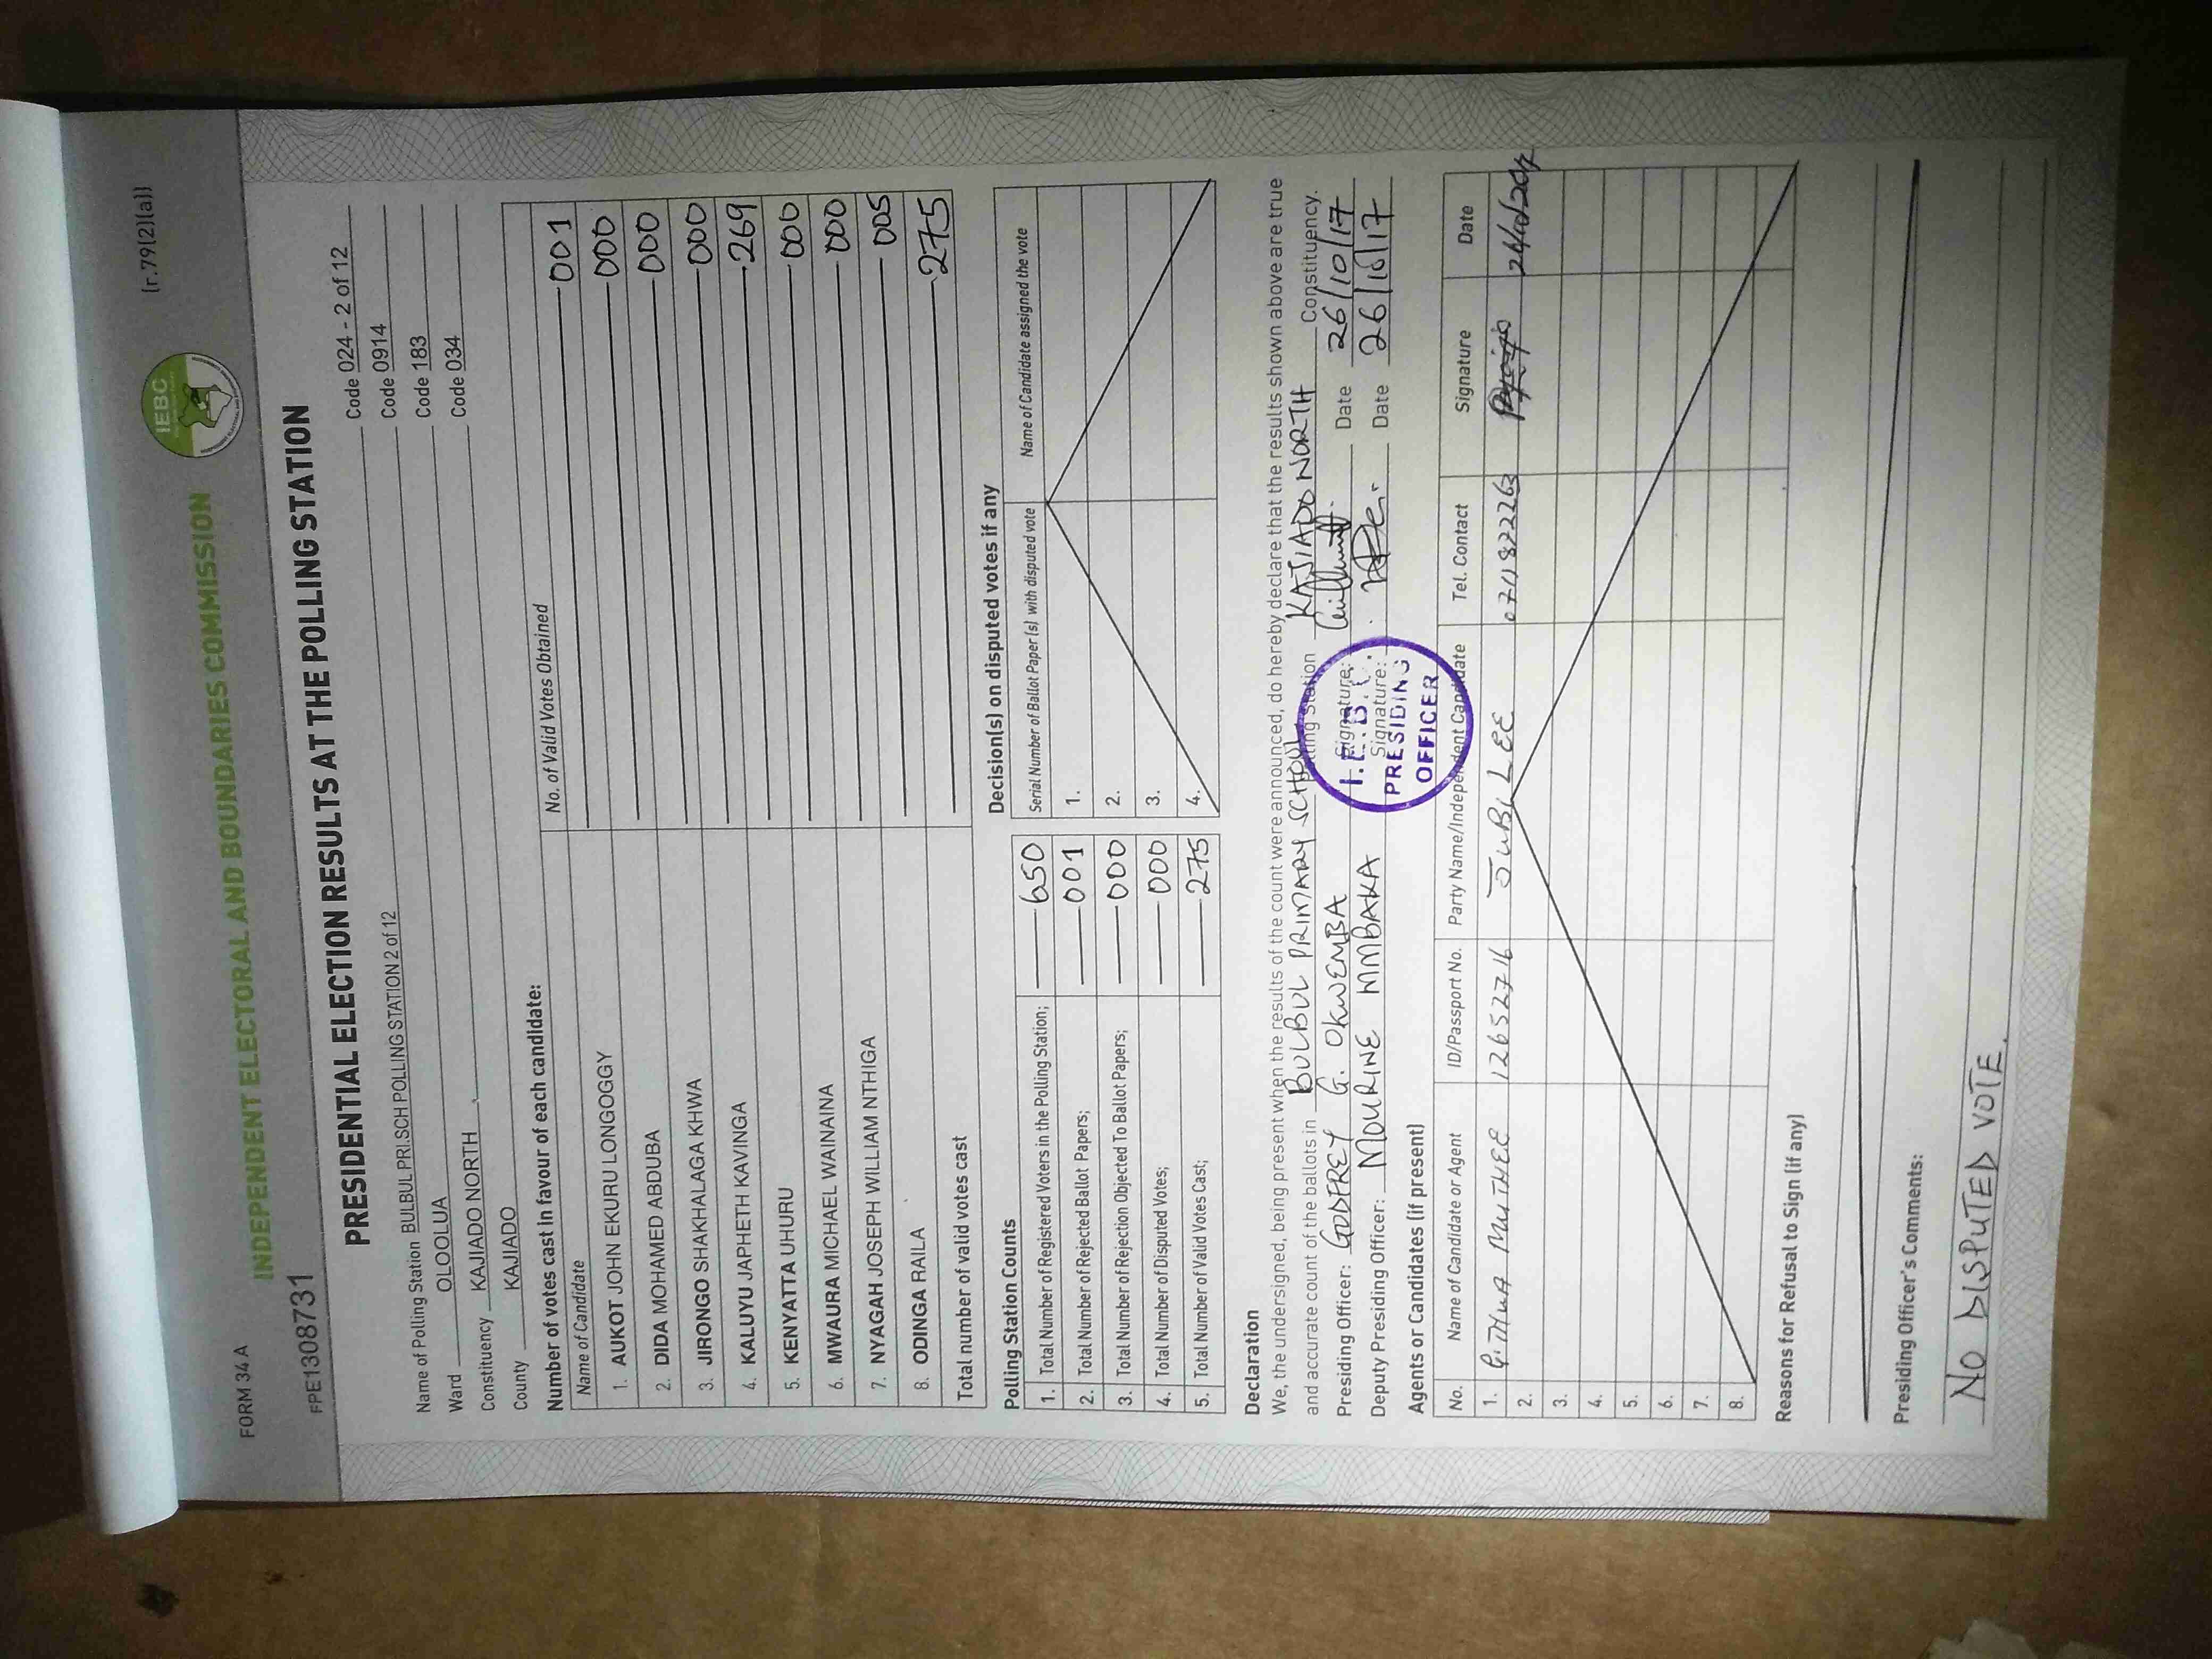 FORM 34 A
[r.79(2)(a)]
IEBC
INDEPENDENT ELECTORAL AND BOUNDARIES COMMISSION
FPE1308731
PRESIDENTIAL ELECTION RESULTS AT THE POLLING STATION
Name of Polling Station BULBUL PRI.SCH POLLING STATION 2 of 12 Code 024 - 2 of 12
Ward OLOOLUA Code 0914
Constituency KAJIADO NORTH Code 183
County KAJIADO Code 034
Number of votes cast in favour of each candidate:
Name of Candidate No. of Valid Votes Obtained
1. AUKOT JOHN EKURU LONGOGGY 001
2. DIDA MOHAMED ABDUBA 000
3. JIRONGO SHAKHALAGA KHWA 000
4. KALUYU JAPHETH KAVINGA 000
5. KENYATTA UHURU 269
6. MWAURA MICHAEL WAINAINA 000
7. NYAGAH JOSEPH WILLIAM NTHIGA 000
8. ODINGA RAILA 005
Total number of valid votes cast 275
Polling Station Counts
1. Total Number of Registered Voters in the Polling Station; 650
2. Total Number of Rejected Ballot Papers; 001
3. Total Number of Rejection Objected To Ballot Papers; 000
4. Total Number of Disputed Votes; 000
5. Total Number of Valid Votes Cast; 275
Decision(s) on disputed votes if any
Serial Number of Ballot Paper(s) with disputed vote Name of Candidate assigned the vote
1.
2.
3.
4.
Declaration
We, the undersigned, being present when the results of the count were announced, do hereby declare that the results shown above are true
and accurate count of the ballots in BULBUL PRIMARY SCHOOL Polling Station KAJIADO NORTH Constituency.
Presiding Officer: GODFREY G. OKWEMBA Signature: Date 26/10/17
Deputy Presiding Officer: MOURINE MMBAKA Signature: Date 26/10/17
I.E.B.C.
PRESIDING
OFFICER
Agents or Candidates (if present)
No. Name of Candidate or Agent ID/Passport No. Party Name/Independent Candidate Tel. Contact Signature Date
1. GITHUA MUTHEE 12652716 JUBILEE
2.
3.
4.
5.
6.
7.
8.
Reasons for Refusal to Sign (if any)
Presiding Officer's Comments:
NO DISPUTED VOTE.